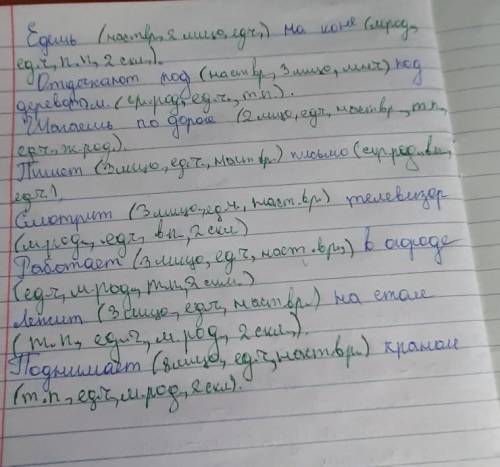 Едешь (наст.вр., 2 лицо, ед.ч.,) на коне (м.род.,
ед.ч., п.п., 2 скл.,).
Отдыхают под (наст.вр., 3 лицо, мн.ч) под
деревом. (ср.род., ед.ч., т.п.).
Шагаешь по дороге (2 лицо, ед.ч, наст.вр., т.п.,
ед.ч., ж.род.).
Пишет (3 лицо, ед.ч, наст.вр.) письмо (ср.род., вп.,
ед.ч.).
Смотрит (3 лицо, ед.ч, наст.вр.) телевизор
(м.род., ед.ч, вп., 2 скл)
Работает (3 лицо, ед.ч, наст.вр.,) в огороде
(ед.ч, м.род., т.п., 2 скл.)
Лежит (3 лицо, ед.ч, наст.вр.) на столе
(т.п, ед.ч, м.род, 2 скл.).
Поднимает (лицо, ед.ч, наст.вр.) краном
(т.п., ед.ч, м.род, 2 скл).